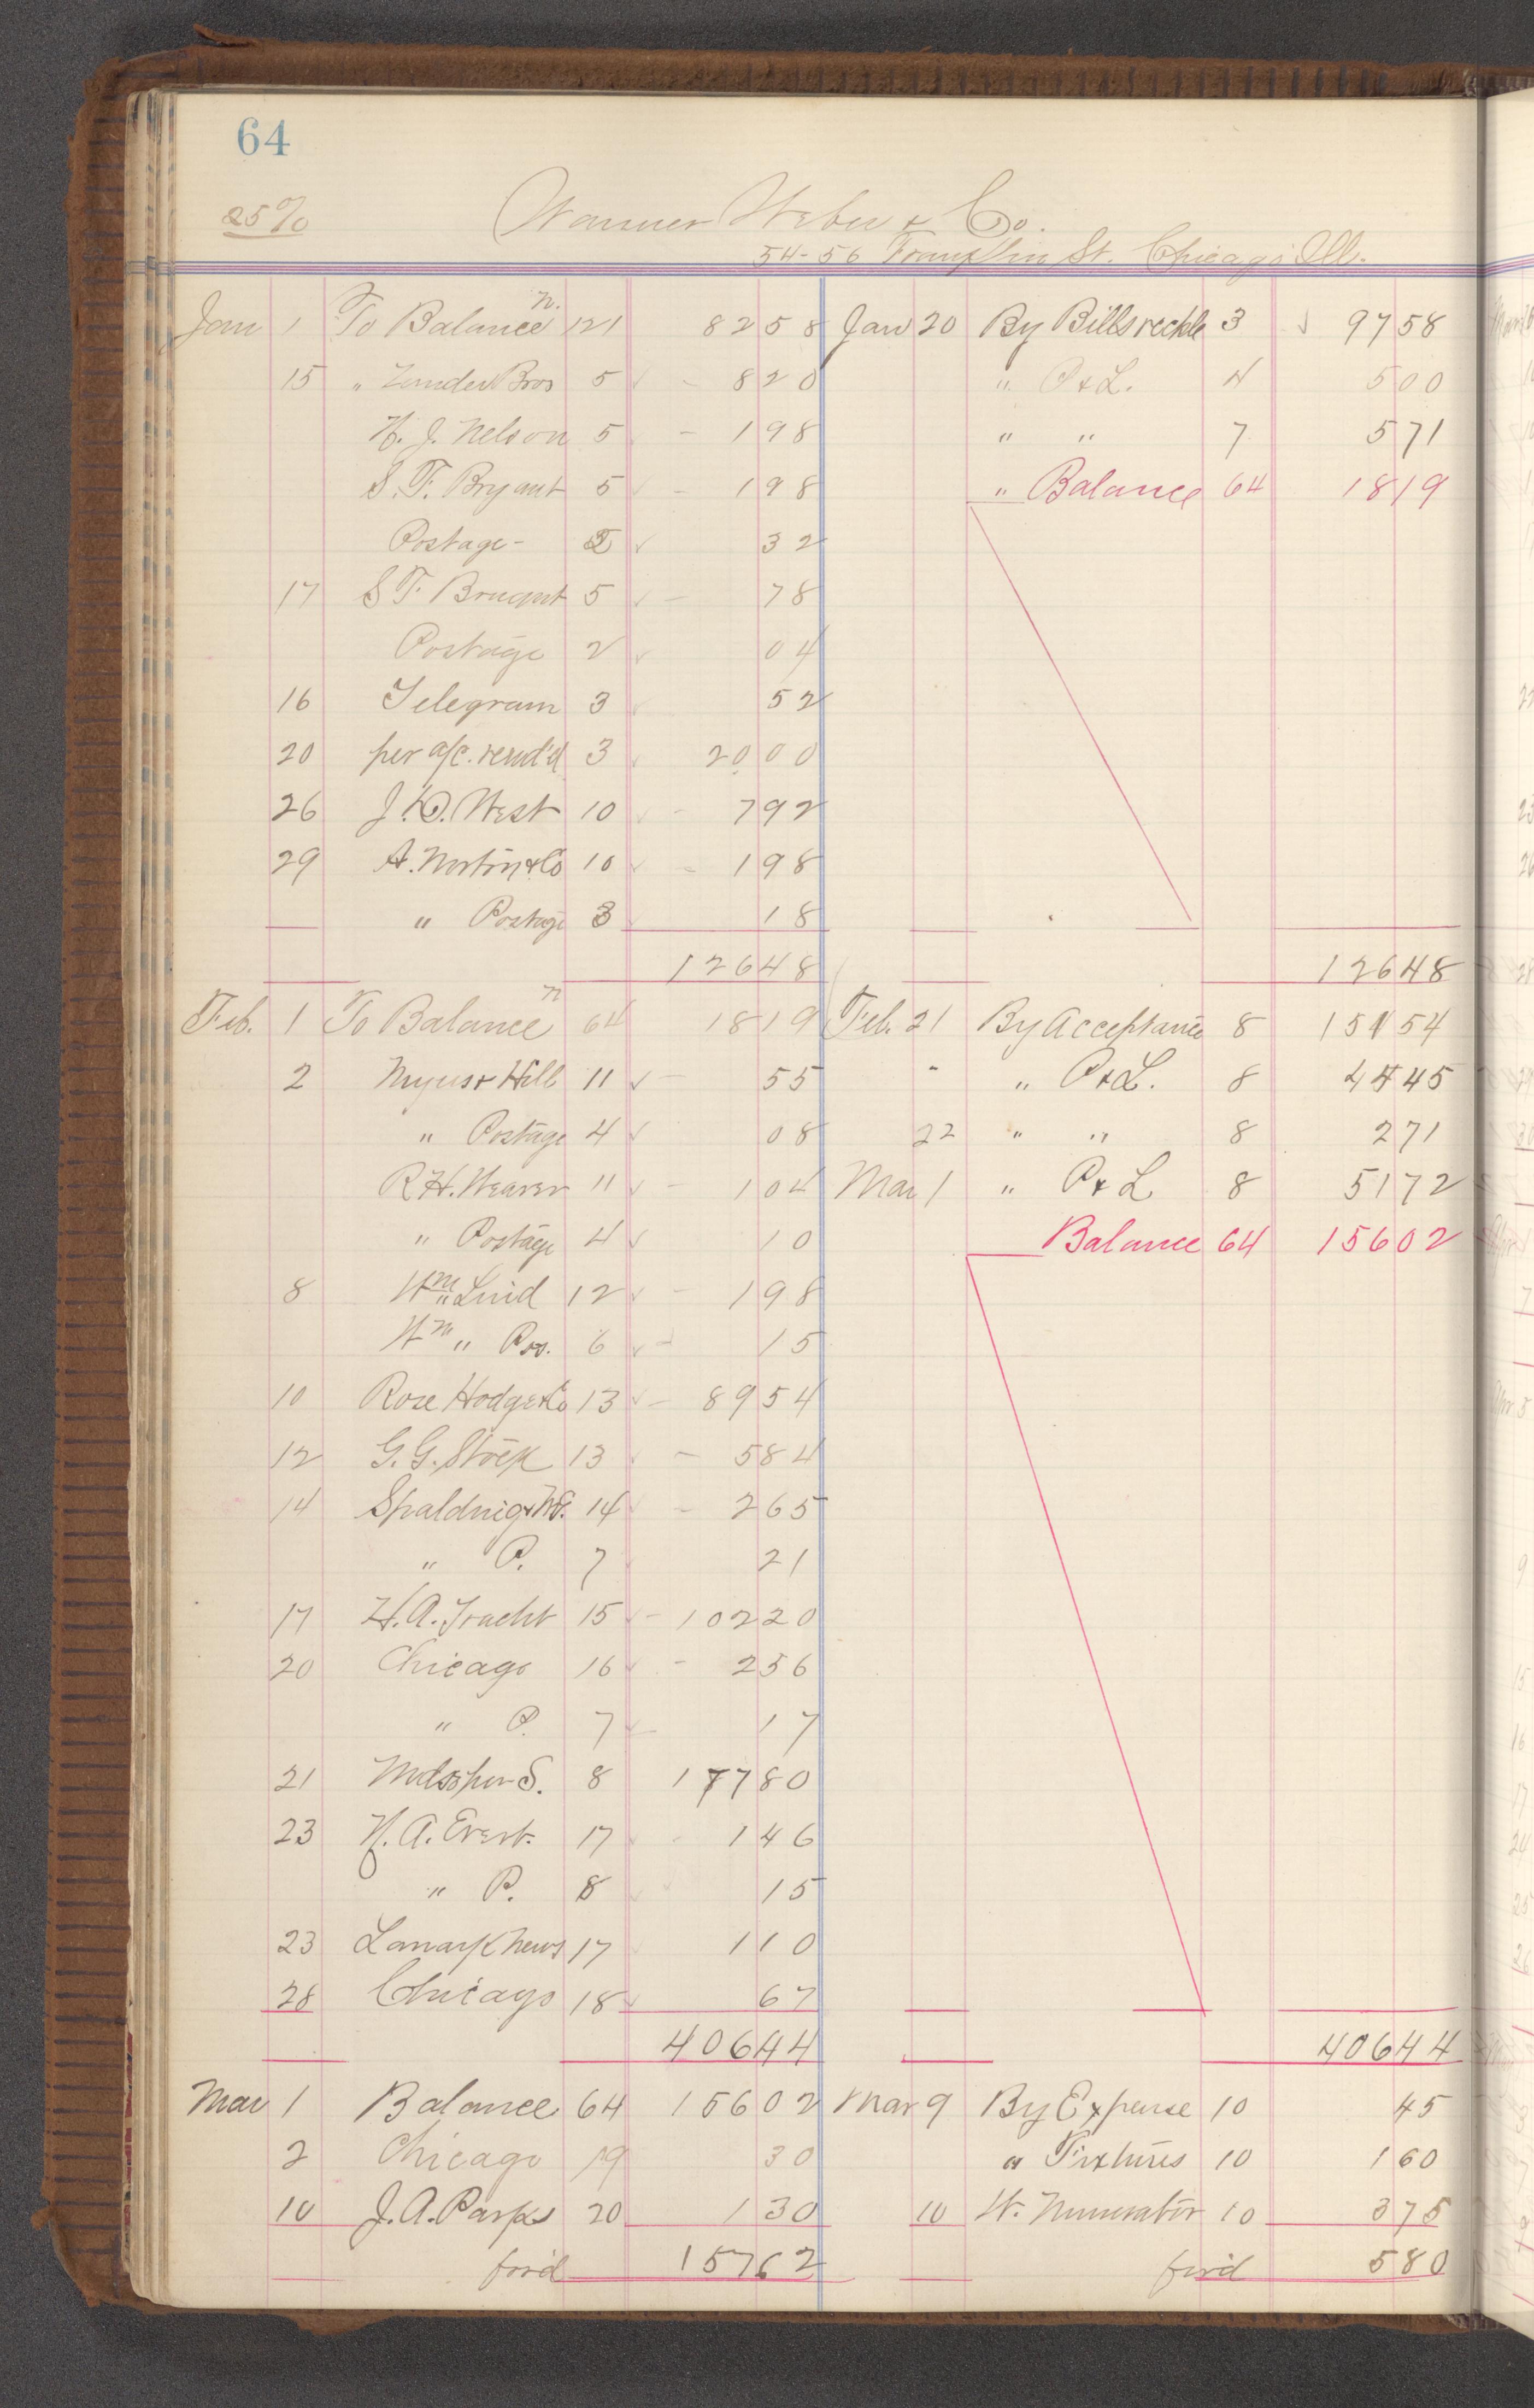 64
25%
Wanner Weber & Co.
54-56 Franklin St. Chicago Ill.
Jan 1 To Balance n. 121 82 58
15 " Zender Bros 5 ✓ - 8 20
H. J. Nelson 5 - 1 98
S. F. Bryant 5 ✓ - 1 98
Postage - 2 ✓ 32
17 S F. Bryant 5 ✓ - 78
Postage 2 ✓ 04
16 Telegram 3 ✓ 52
20 per a/c. rend'd 3 ✓ 20 00
26 J. D. West 10 ✓ - 7 92
29 A. Norton & Co 10 ✓ - 1 98
" Postage 3 ✓ 18
126 48
Feb. 1 To Balance n 64 18 19
2 Myus & Hill 11 ✓ - 55
" Postage 4 ✓ 08
R H. Weaver 11 ✓ - 1 04
" Postage 4 ✓ 10
8 Wm Luid 12 ✓ - 1 98
Wm " Pos. 6 ✓ - 15
10 Rose Hodge & Co 13 ✓ - 89 54
12 G. G. Stoek 13 ✓ - 5 84
14 Spalding & 14 ✓ - 2 65
" P. 7 ✓ 21
17 H. A. Tracht 15 ✓ - 102 20
20 Chicago 16 ✓ - 2 56
" P. 7 ✓ 17
21 Mds per S. 8 177 80
23 H. A. Evert. 17 ✓ - 1 46
" P. 8 ✓ 15
23 Lanark News 17 1 10
28 Chicago 18 ✓ 67
406 44
Mar 1 Balance 64 156 02
2 Chicago 19 30
10 J. A. Parks 20 1 30
for'd 157 62
Jan 20 By Bills reckble 3 ✓ 97 58
" P & L. 4 5 00
" " 7 5 71
" Balance 64 18 19
126 48
Feb. 21 By Acceptance 8 151 54
" " P & L. 8 44 45
22 " " 8 2 71
Mar 1 " P & L 8 51 72
Balance 64 156 02
406 44
Mar 9 By Expense 10 45
" Fixtures 10 1 60
10 W. Numerator 10 3 75
for'd 5 80